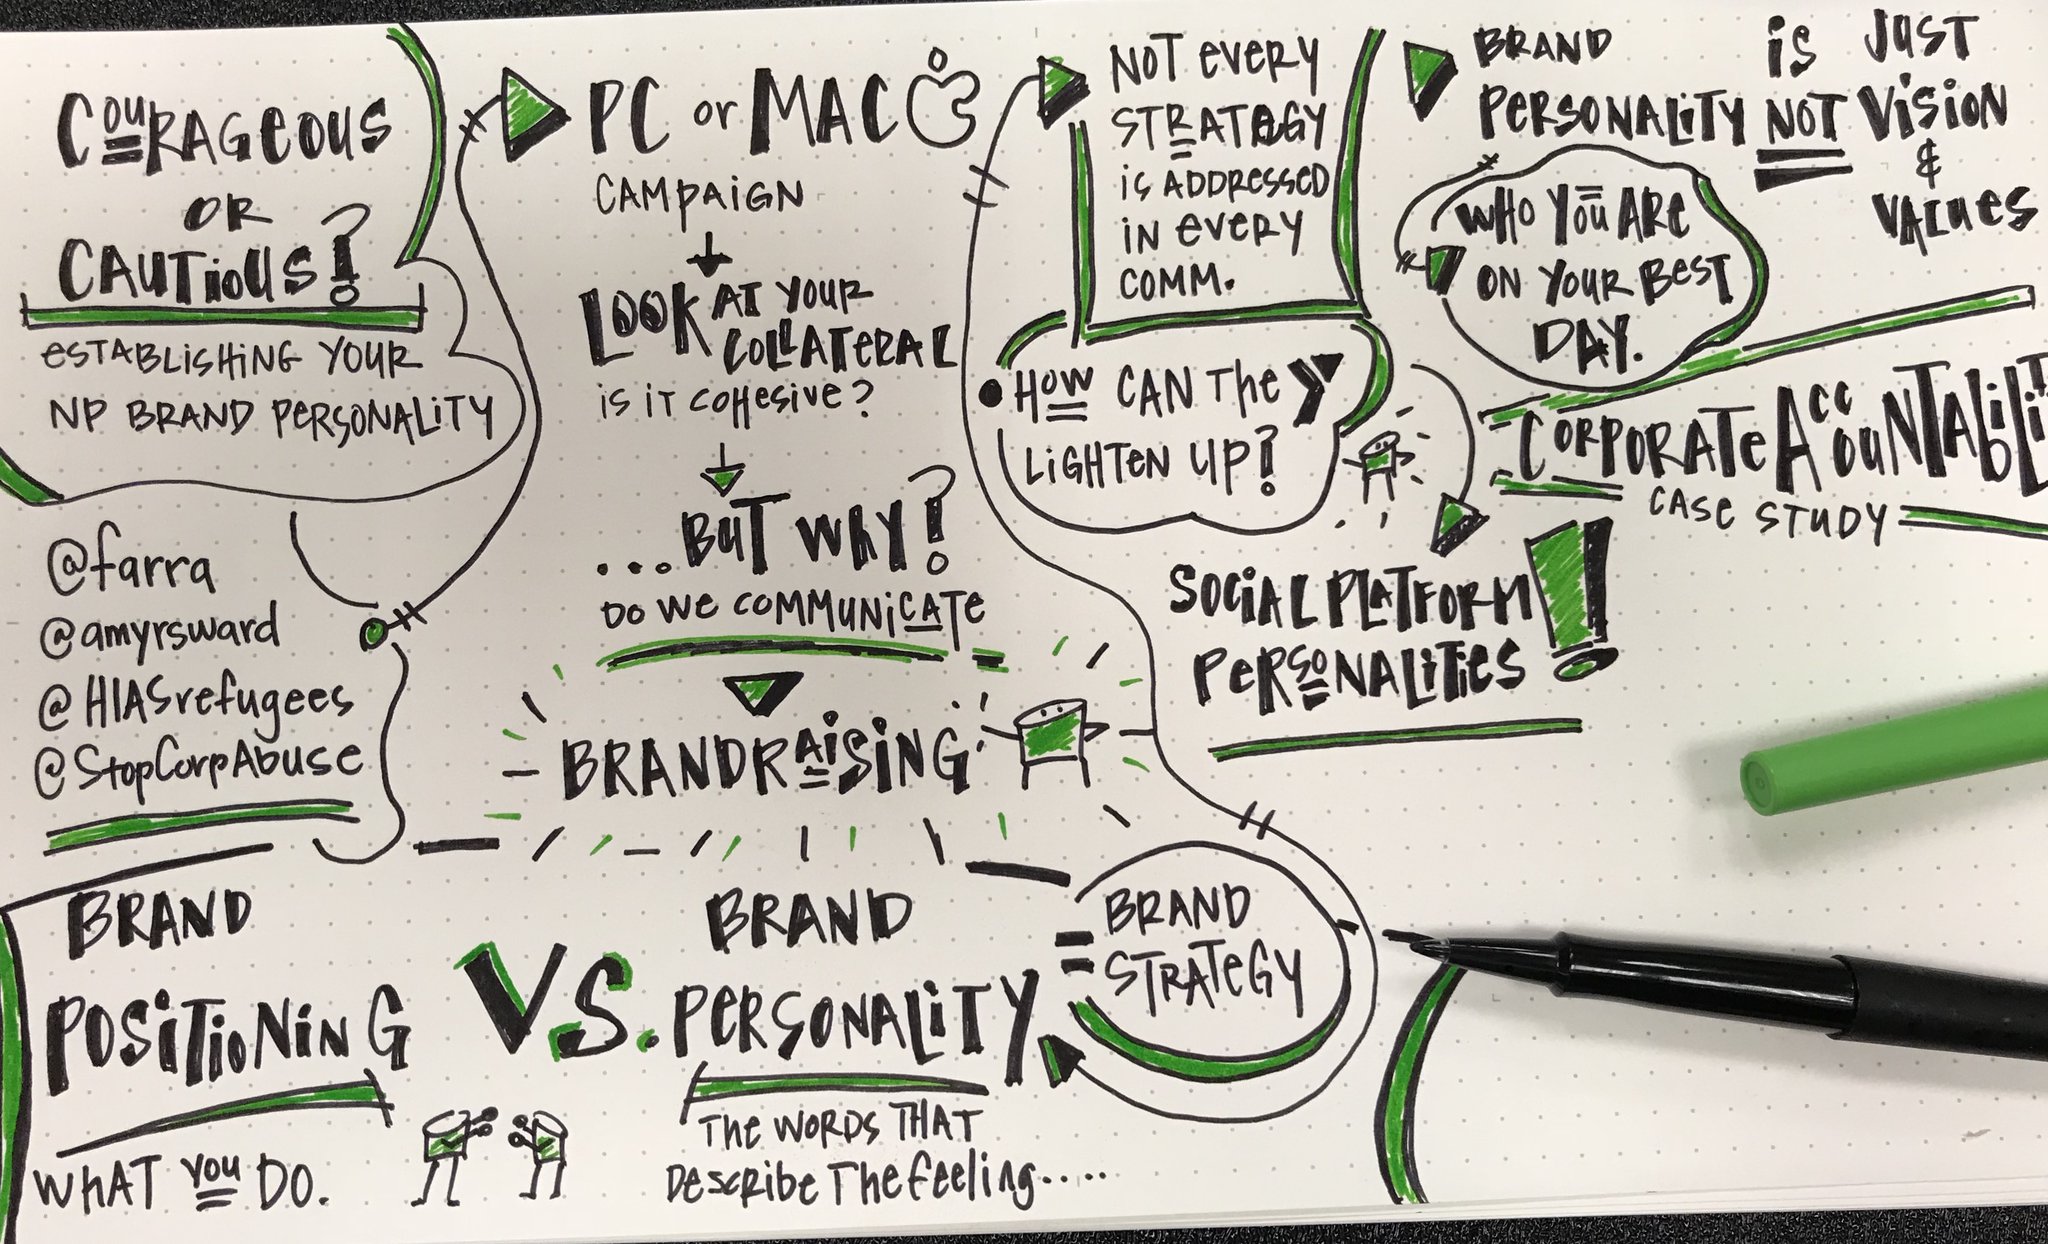 COURAGEOUS
OR
CAUTIOUS?
ESTABLISHING YOUR
NP BRAND PERSONALITY
@farra
@amyrsward
@HIASrefugees
@StopCorpAbuse
BRAND
POSITIONING
WHAT YOU DO.
VS.
BRAND
PERSONALITY
THE WORDS THAT
DESCRIBE THE FEELING.....
= BRAND
STRATEGY
PC or MAC
CAMPAIGN
LOOK AT YOUR
COLLATERAL
IS IT COHESIVE?
...BUT WHY?
DO WE COMMUNICATE
BRANDRAISING
NOT EVERY
STRATEGY
IS ADDRESSED
IN EVERY
COMM.
HOW CAN THE Y
LIGHTEN UP?
BRAND
PERSONALITY IS NOT JUST
VISION
&
VALUES
WHO YOU ARE
ON YOUR BEST
DAY.
CORPORATE ACCOUNTABILIT
CASE STUDY
SOCIAL PLATFORM
PERSONALITIES!